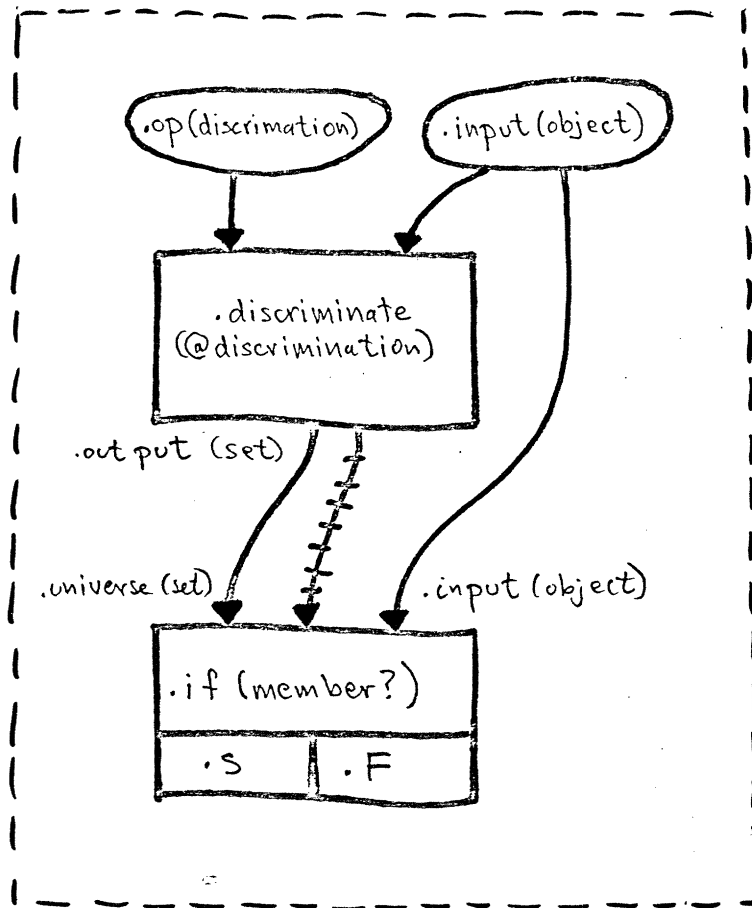 .op(discrimation)
.input(object)
.discriminate
(@discrimination)
.output (set)
.universe (set)
.input (object)
.if (member?)
.S
.F